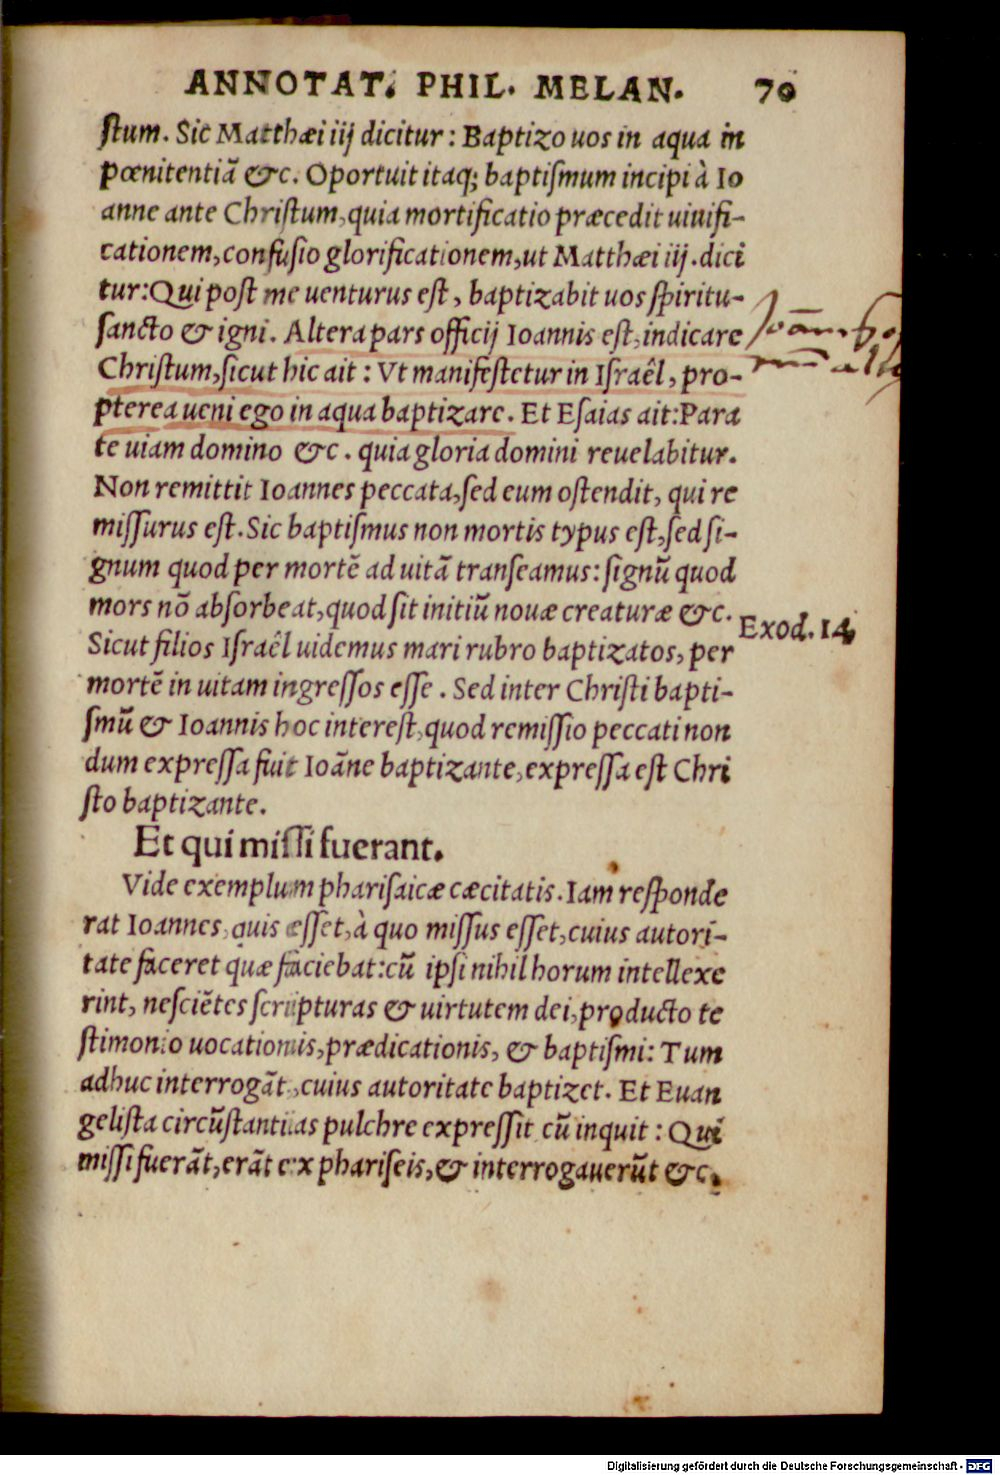 ANNOTAT. PHIL. MELAN. 70
ſtum. Sic Matthæi iij dicitur: Baptizo uos in aqua in
pœnitentiã &c. Oportuit itaq; baptiſmum incipi à Io
anne ante Chriſtum, quia mortificatio præcedit uiuifi-
cationem, confuſio glorificationem, ut Matthæi iij. dici
tur: Qui poſt me uenturus eſt, baptizabit uos ſpiritu-
ſancto & igni. Altera pars officij Ioannis eſt, indicare
Chriſtum, ſicut hic ait: Vt manifeſtetur in Iſraêl, pro-
pterea ueni ego in aqua baptizare. Et Eſaias ait: Para
te uiam domino &c. quia gloria domini reuelabitur.
Non remittit Ioannes peccata, ſed eum oſtendit, qui re
miſſurus eſt. Sic baptiſmus non mortis typus eſt, ſed ſi-
gnum quod per mortẽ ad uitã tranſeamus: ſignũ quod
mors nõ abſorbeat, quod ſit initiũ nouæ creaturæ &c.
Exod. 14
Sicut filios Iſraêl uidemus mari rubro baptizatos, per
mortẽ in uitam ingreſſos eſſe. Sed inter Chriſti bapti-
ſmũ & Ioannis hoc intereſt, quod remiſſio peccati non
dum expreſſa fuit Ioãne baptizante, expreſſa eſt Chri
ſto baptizante.
Et qui miſſi fuerant.
Vide exemplum phariſaicæ cæcitatis. Iam reſponde
rat Ioannes, quis eſſet, à quo miſſus eſſet, cuius autori-
tate faceret quæ faciebat: cũ ipſi nihil horum intellexe
rint, neſciẽtes ſcripturas & uirtutem dei, producto te
ſtimonio uocationis, prædicationis, & baptiſmi: Tum
adhuc interrogãt, cuius autoritate baptizet. Et Euan
geliſta circũſtantias pulchre expreſſit cũ inquit: Qui
miſſi fuerãt, erãt ex phariſeis, & interrogauerũt &c.
Digitalisierung gefördert durch die Deutsche Forschungsgemeinschaft - DFG